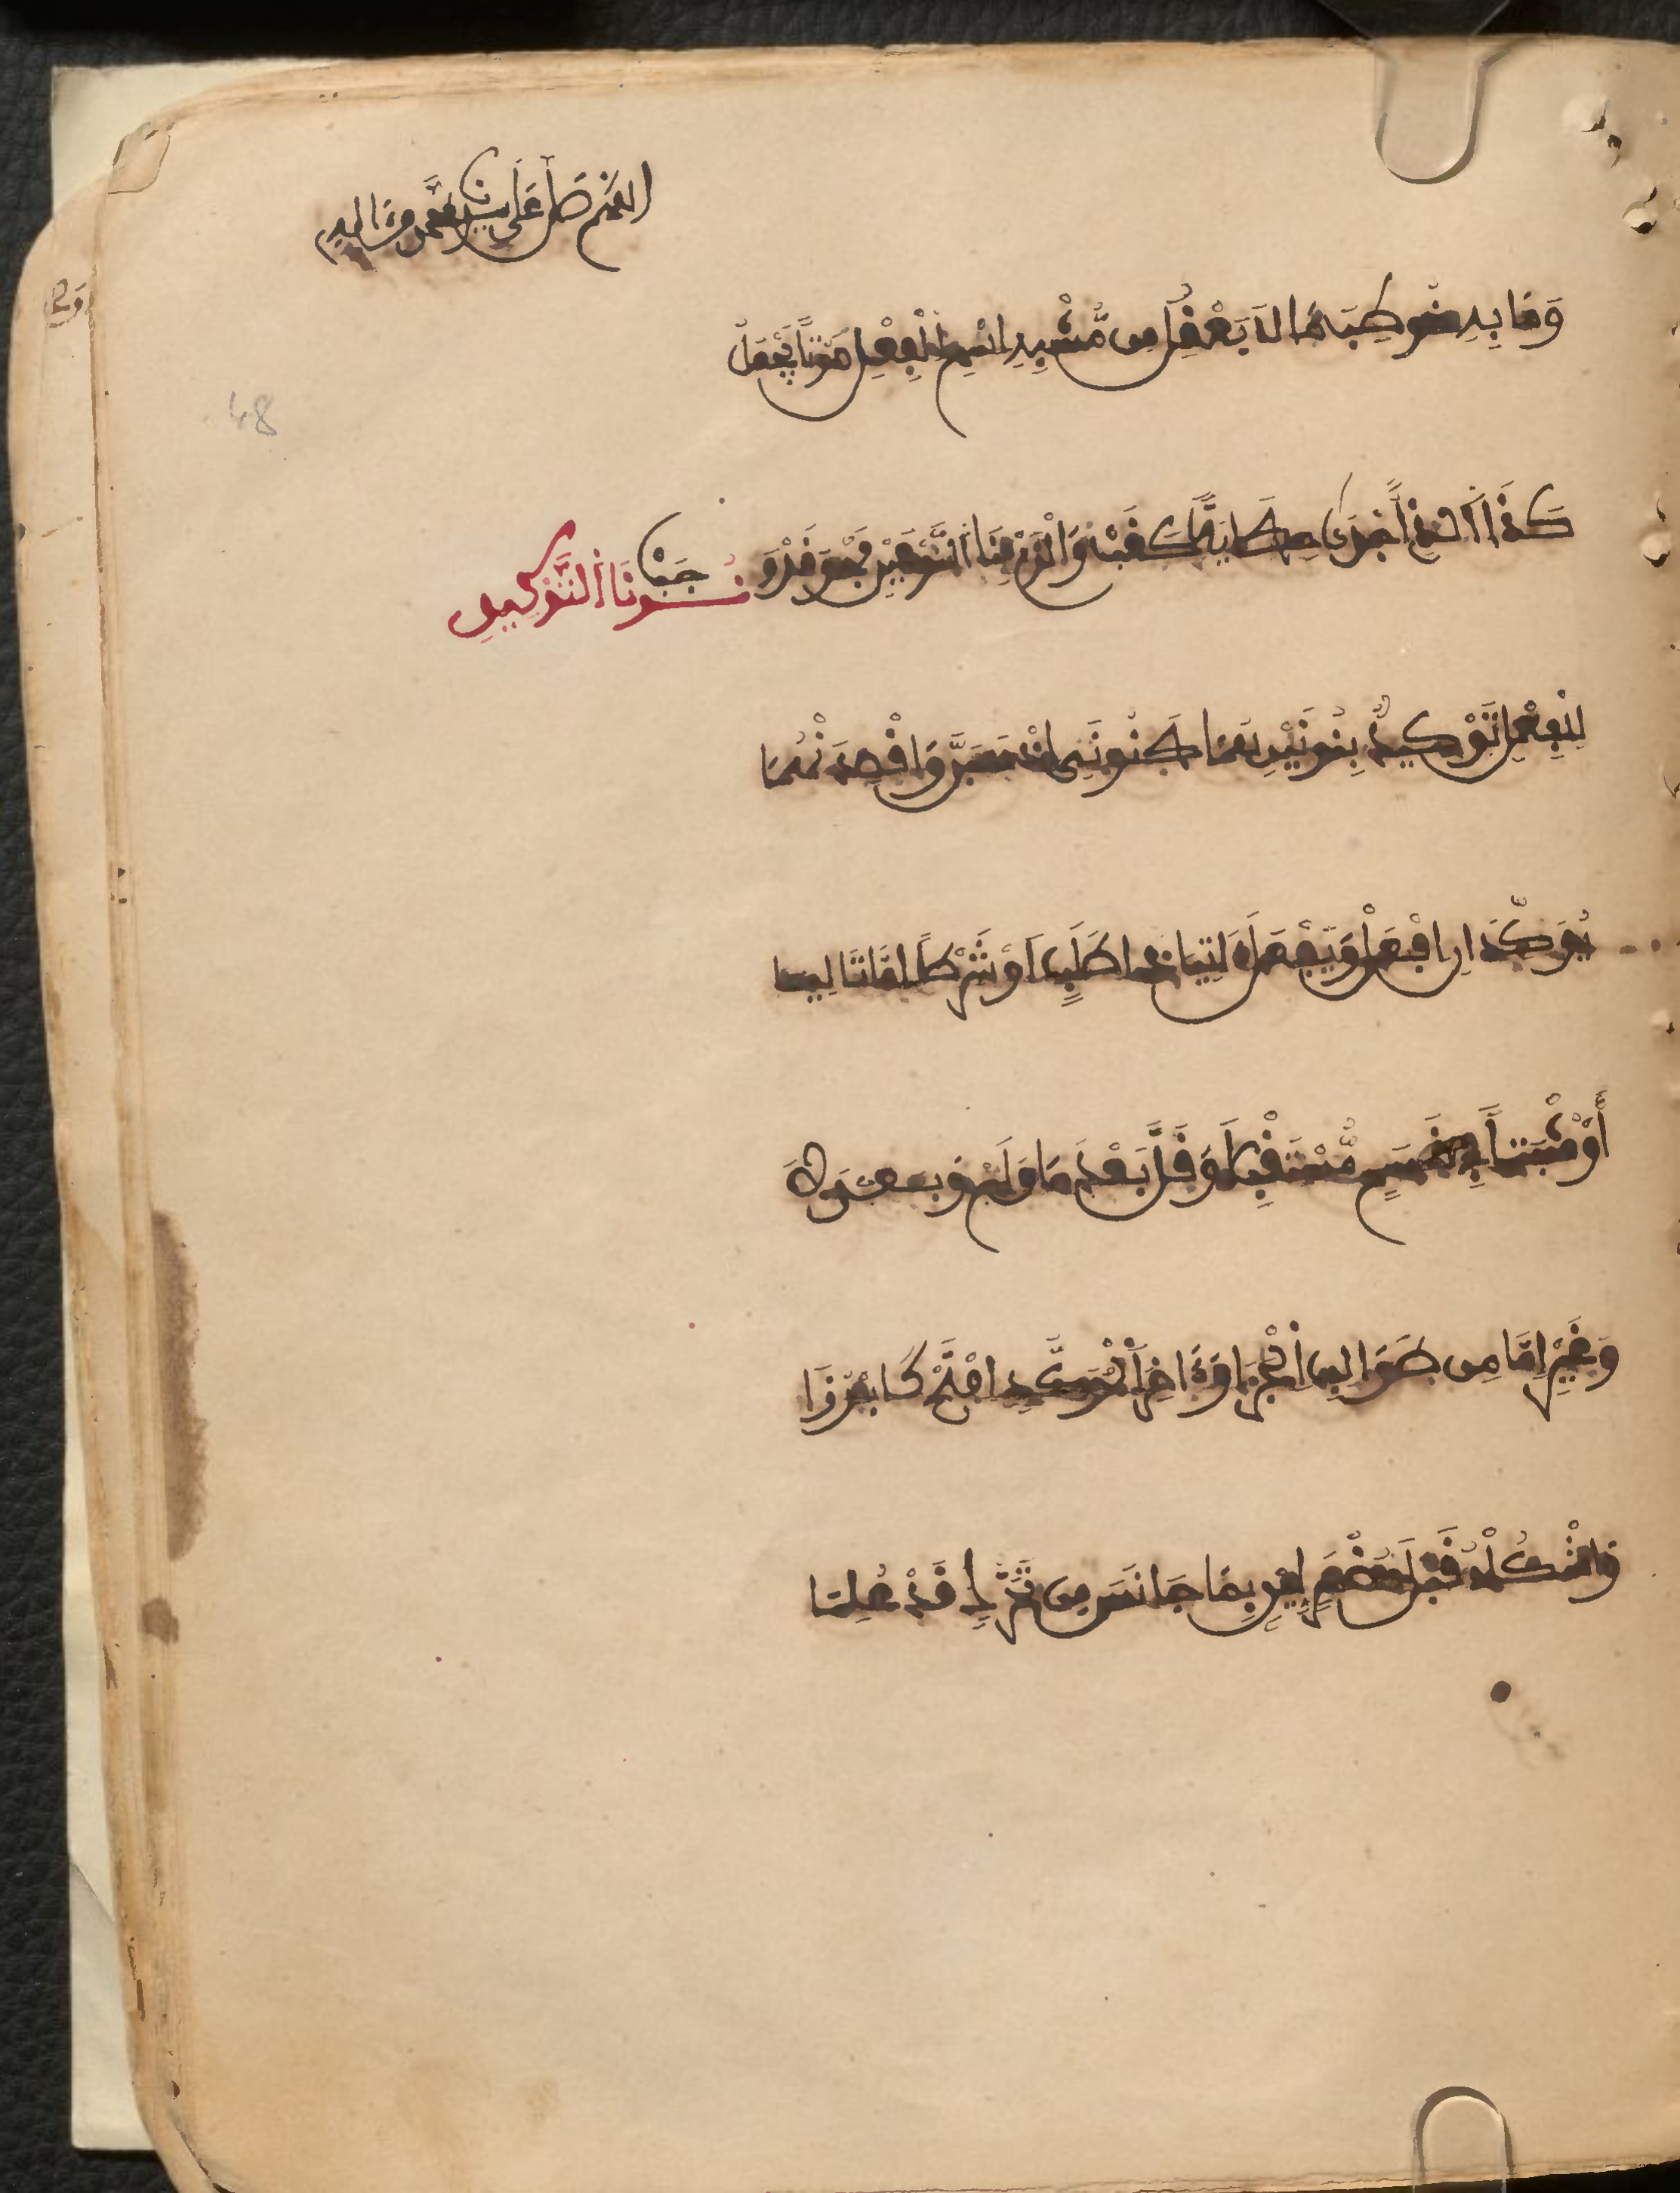 اللهم صل على سيدنا محمد وءاله
وَمَا بِهِ خُوطِبَ مَا لَا يَعْقِلُ مِن مُّشْبِهِ اسْمِ الْفِعْلِ صَوْتاً يُجْعَلُ
كَذَا الذِي أَجْدَى حِكَايَةً كَقَبْ وَالْزَمْ بِنَا النَّوْعَيْنِ فَهْوَ قَدْ وَجَبْ
نُونَا التَّوْكِيدِ
لِلْفِعْلِ تَوْكِيدٌ بِنُونَيْنِ هُمَا كَنُونَيِ اذْهَبَنَّ وَاقْصِدَنْهُمَا
يُوَكِّدَانِ افْعَلْ وَيَفْعَلْ ءَاتِيَا ذَا طَلَبٍ أَوْ شَرْطاً امَّا تَالِيَا
أَوْ مُثْبَتاً فِي قَسَمٍ مُّسْتَقْبَلَا وَقَلَّ بَعْدَ مَا وَلَمْ وَبَعْدَ لَا
وَغَيْرِ إِمَّا مِن طَوَالِبِ الْجَزَا وَءَاخِرَ الْمُوَكَّدِ افْتَحْ كَابْرُزَا
وَاشْكُلْهُ قَبْلَ مُضْمَرٍ لَيْنٍ بِمَا جَانَسَ مِن تَحَرُّكٍ قَدْ عُلِمَا
48